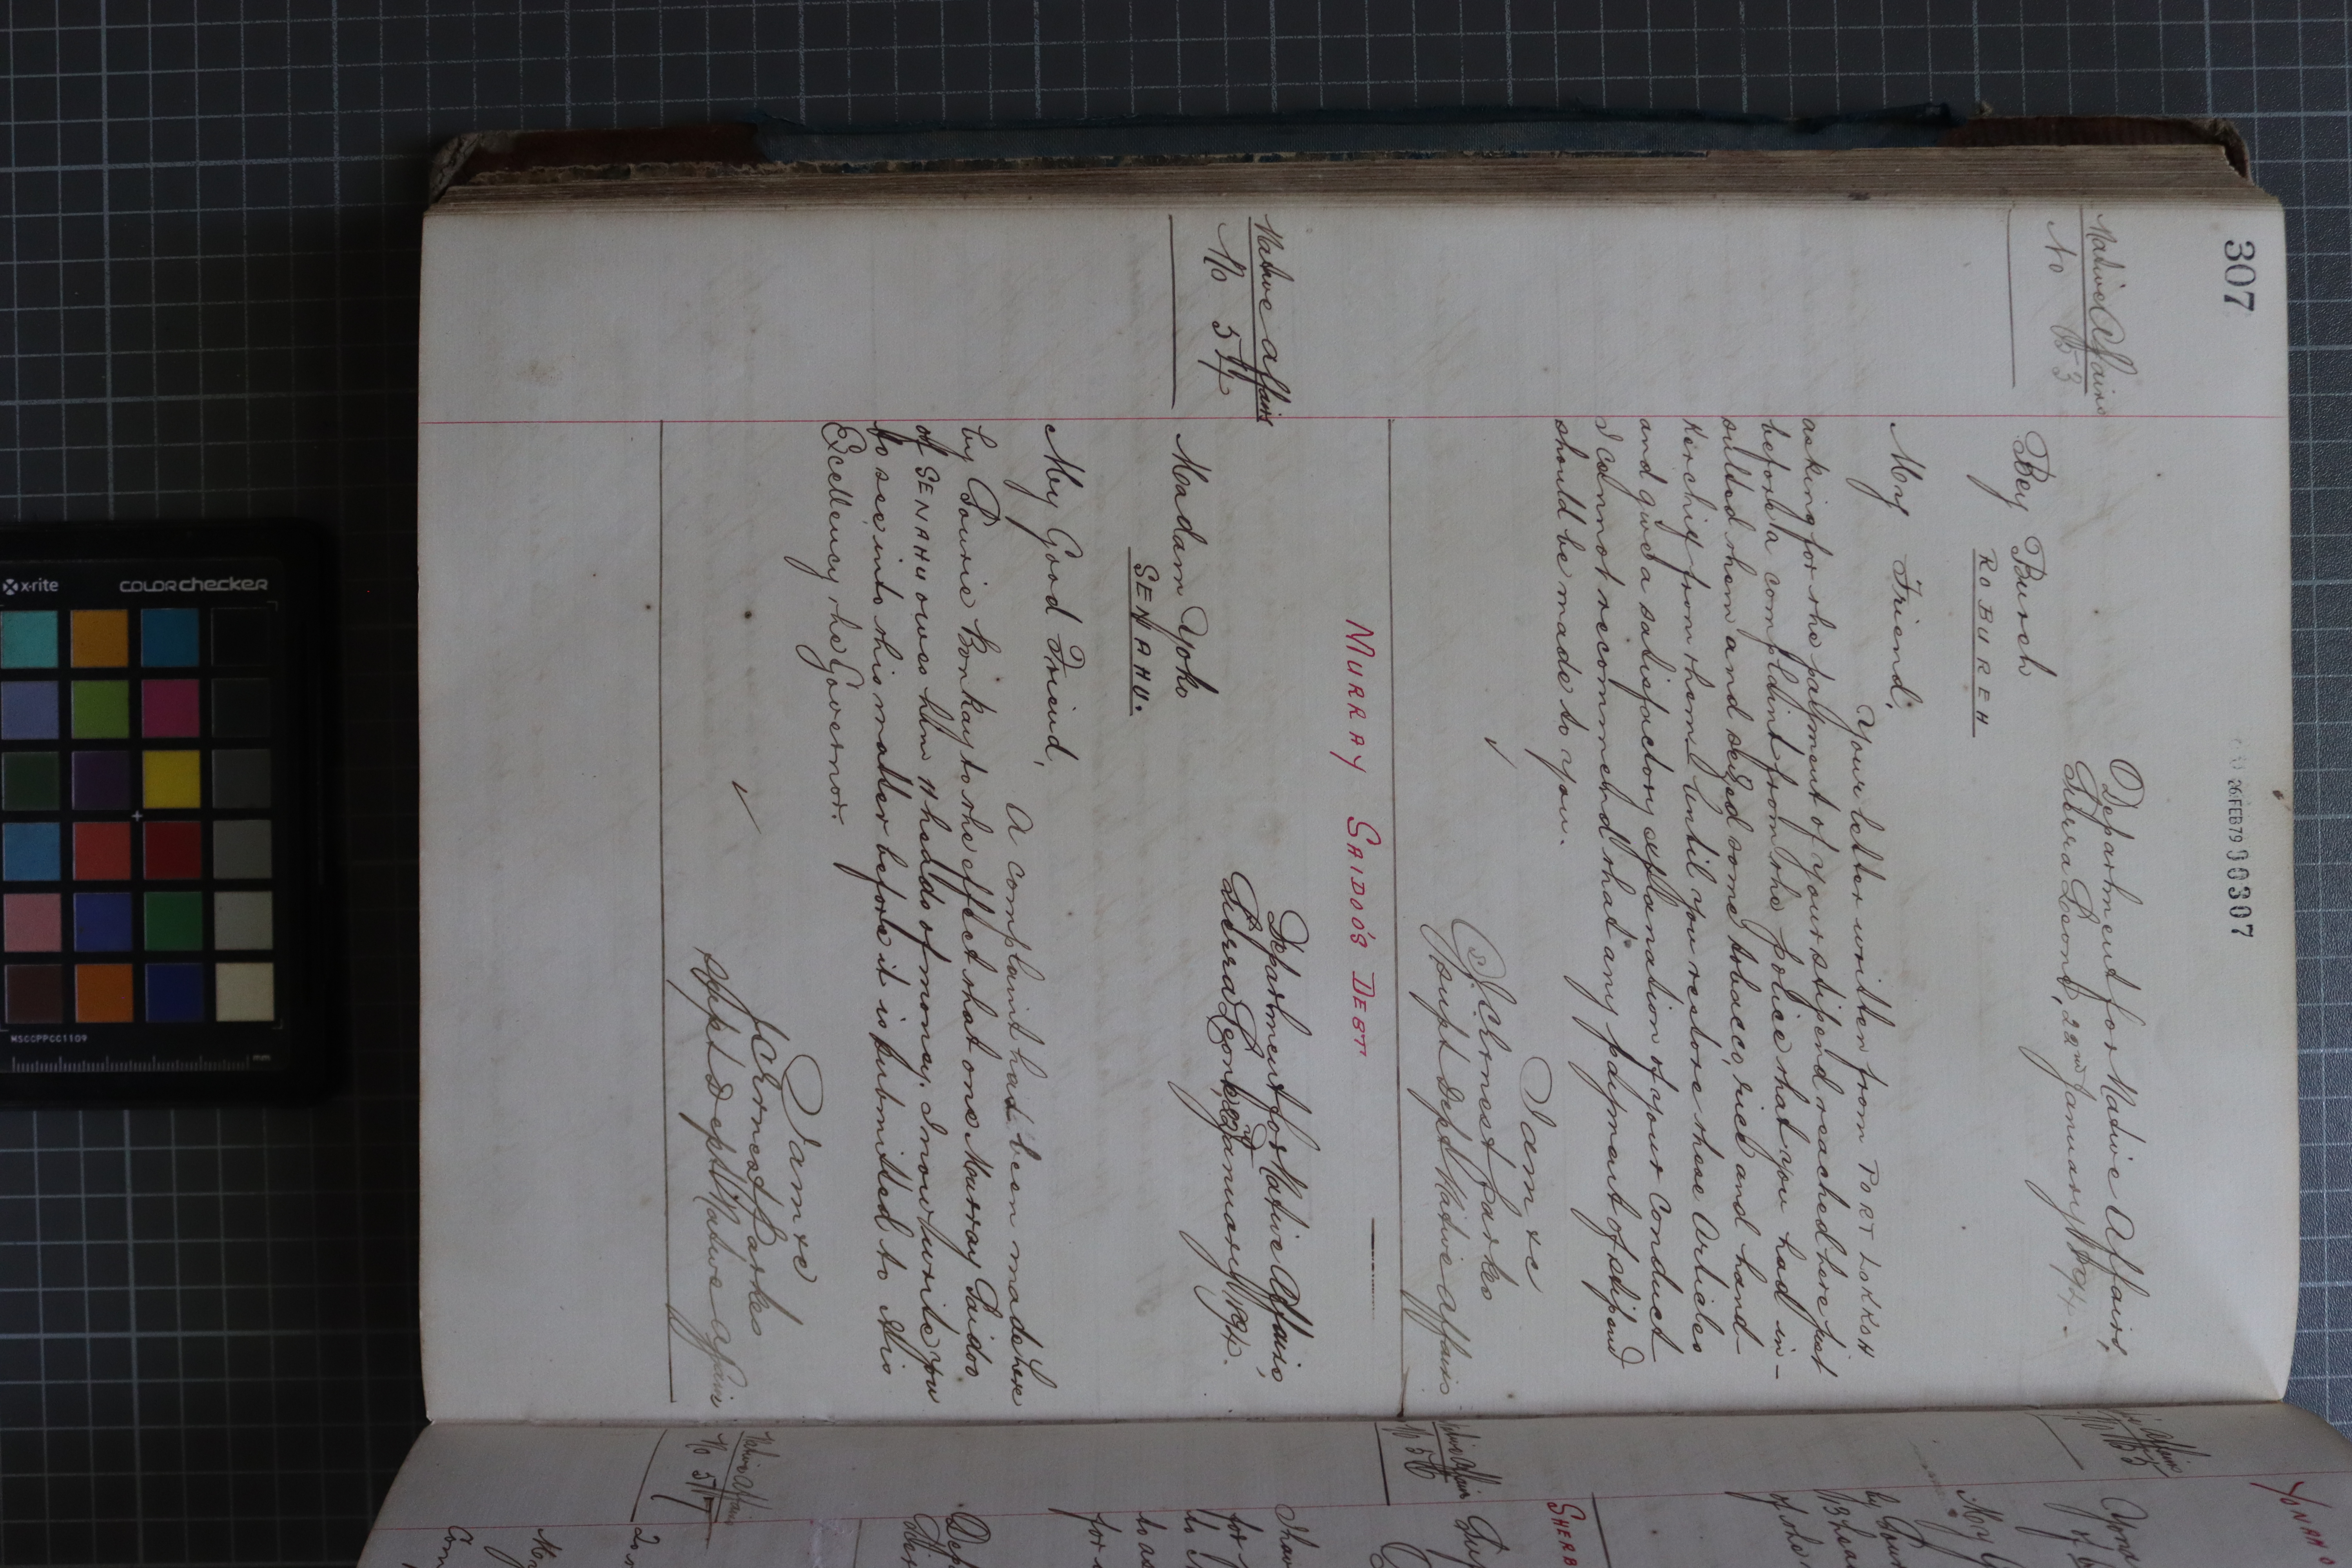 307
26 FEB 79 00307
Native Affairs
No 53
Department for Native Affairs,
Sierra Leone, 22nd January 1894.
Bey Bureh
ROBUREH
My Friend,
Your letter written from PORT LOKKOH
asking for the payment of your stipend reached here just
before a complaint from the police that you had in-
sulted them and seized some tobacco, rice and hand-
kerchief from them. Until you restore those Articles
and give a satisfactory explanation of your Conduct
I cannot recommend that any payment of stipend
should be made to you.
I am &c
J C Ernest Parkes
Supt Dept Native Affairs
MURRAY SAIDOO'S DEBT
Native Affairs
No 54
Department for Native Affairs,
Sierra Leone 22nd January 1894.
Madam Yoko
SENAHU.
My Good Friend,
A complaint has been made here
by Bonkay to the effect that one Murray Saidoo
of SENAHU owes him 11 heads of money. I now write you
to see into this matter before it is submitted to His
Excellency the Governor.
I am &c
J C Ernest Parkes
Supt Dept Native Affairs
Native Affairs
No 56
SHERB
Native Affairs
No 57
My
x-rite
COLORchecker
MSCCPPCC1109
mm